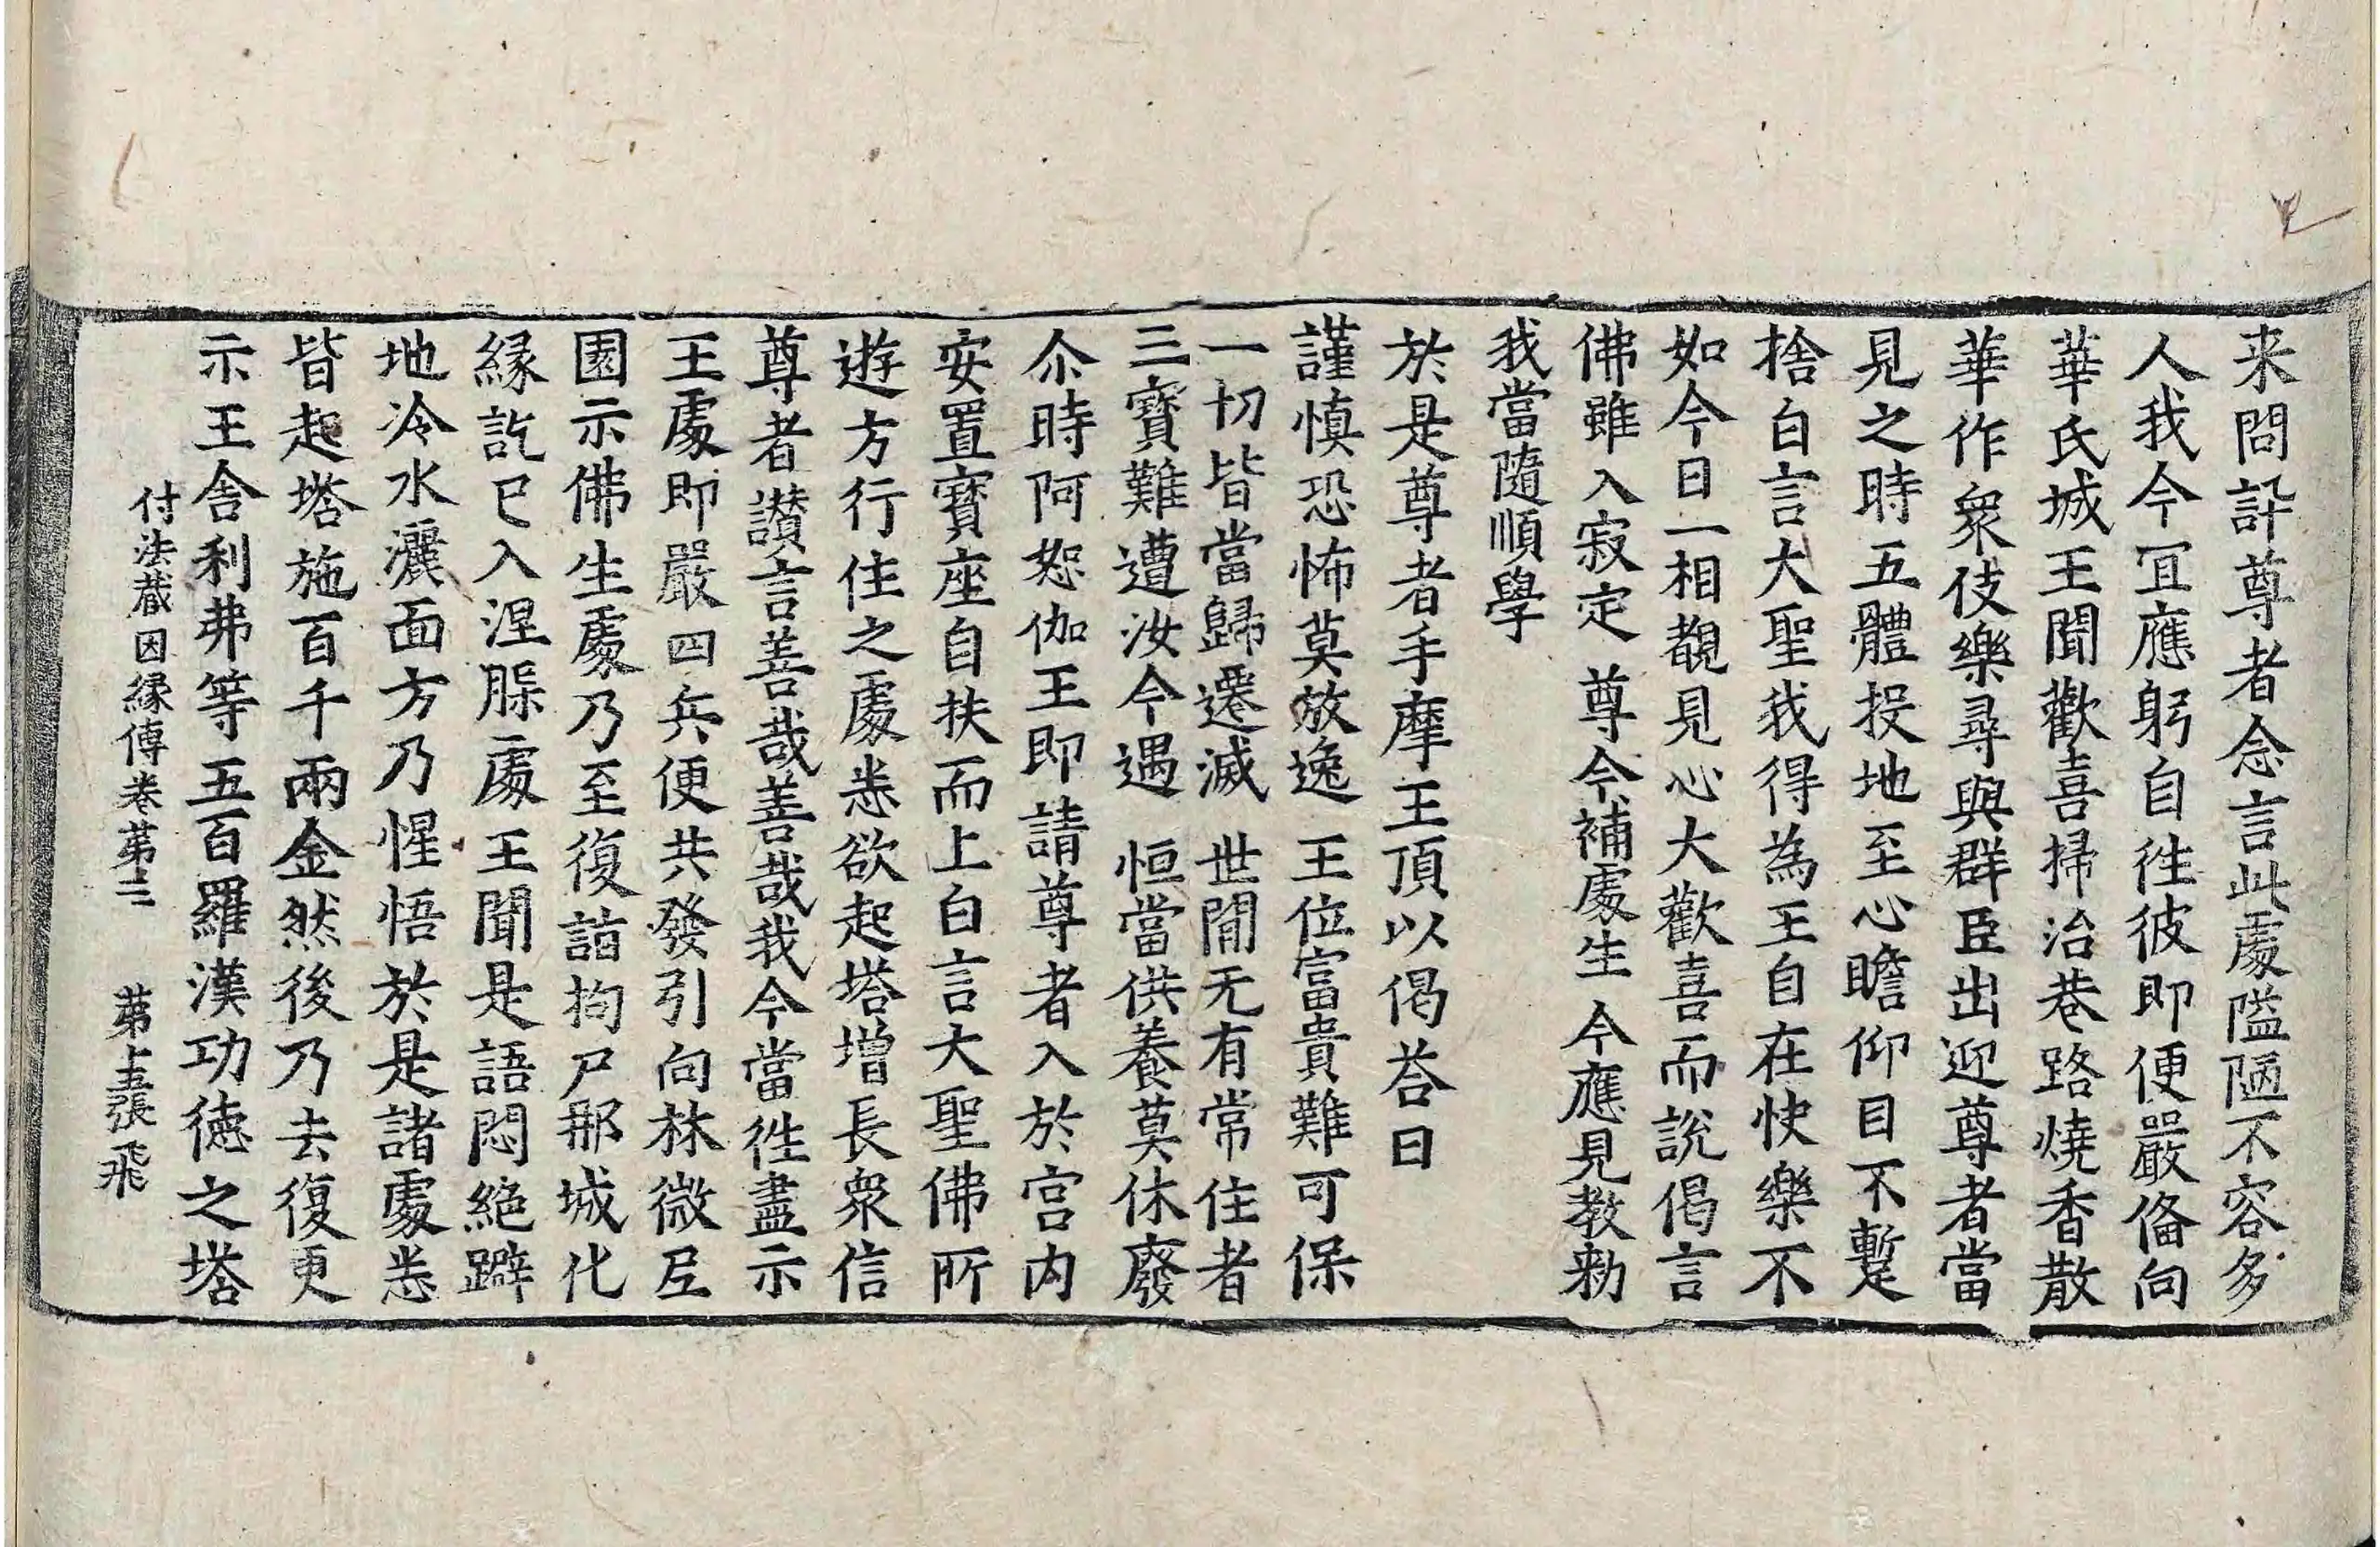 来問訐尊者念言此處隘陋不容多
人我今宜應躬自徃彼即便嚴俻向
華氏城王聞歡喜掃治巷路燒香散
華作衆伎樂尋與群臣出迎尊者當
見之時五體投地至心瞻仰目不暫
捨白言大聖我得為王自在快樂不
如今日一相覩見心大歡喜而說偈言
佛雖入寂定　尊今補處生　今應見教勑
我當隨順學
於是尊者手摩王頂以偈荅曰
謹慎恐怖莫放逸　王位富貴難可保
一切皆當歸遷滅　世間无有常住者
三寳難遭汝今遇　恒當供養莫休廢
尒時阿恕伽王即請尊者入於宫内
安置寳座自扶而上白言大聖佛所
遊方行住之處悉欲起塔增長衆信
尊者讃言善哉善哉我今當徃盡示
王處即嚴四兵便共發引向林微尼
園示佛生處乃至復詣拘尸那城化
縁訖已入涅槃處王聞是語悶絶躃
地冷水灑面方乃惺悟於是諸處悉
皆起塔施百千兩金然後乃去復更
示王舍利弗等五百羅漢功德之塔
付法藏因縁傳卷苐三　苐十五張　飛